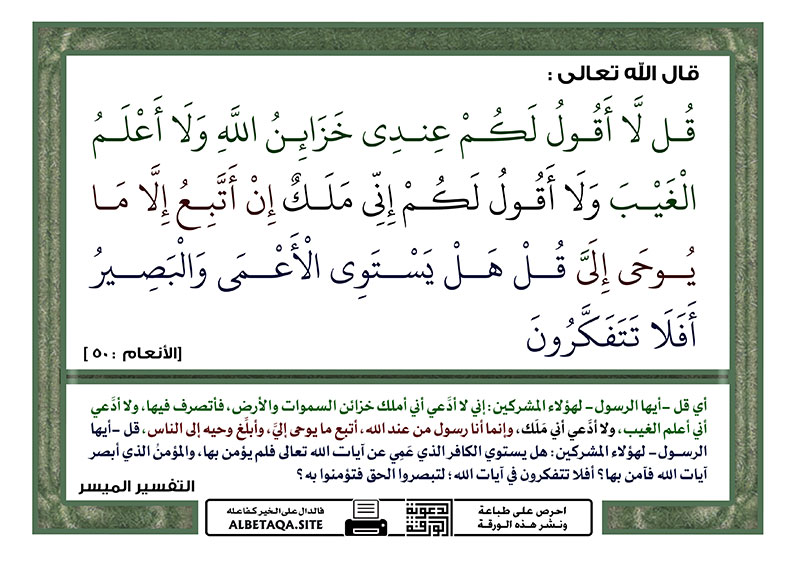 قال الله تعالى :
قُل لَّا أَقُولُ لَكُمْ عِندِى خَزَائِنُ اللَّهِ وَلَا أَعْلَمُ
الْغَيْبَ وَلَا أَقُولُ لَكُمْ إِنِّى مَلَكٌ إِنْ أَتَّبِعُ إِلَّا مَا
يُوحَى إِلَىَّ قُلْ هَلْ يَسْتَوِى الْأَعْمَى وَالْبَصِيرُ
أَفَلَا تَتَفَكَّرُونَ
[الأنعام : ٥٠]
أي قل -أيها الرسول- لهؤلاء المشركين: إني لا أدَّعي أني أملك خزائن السموات والأرض، فأتصرف فيها، ولا أدَّعي
أني أعلم الغيب، ولا أدَّعي أني مَلَك، وإنما أنا رسول من عند الله، أتبع ما يوحى إليَّ، وأبلِّغ وحيه إلى الناس، قل -أيها
الرسول- لهؤلاء المشركين: هل يستوي الكافر الذي عَمِي عن آيات الله تعالى فلم يؤمن بها، والمؤمنُ الذي أبصر
آيات الله فآمن بها؟ أفلا تتفكرون في آيات الله؛ لتبصروا الحق فتؤمنوا به؟
التفسير الميسر
احرص على طباعة
ونشر هذه الورقة
الورقة
الدعوية
فالدال على الخير كفاعله
ALBETAQA.SITE